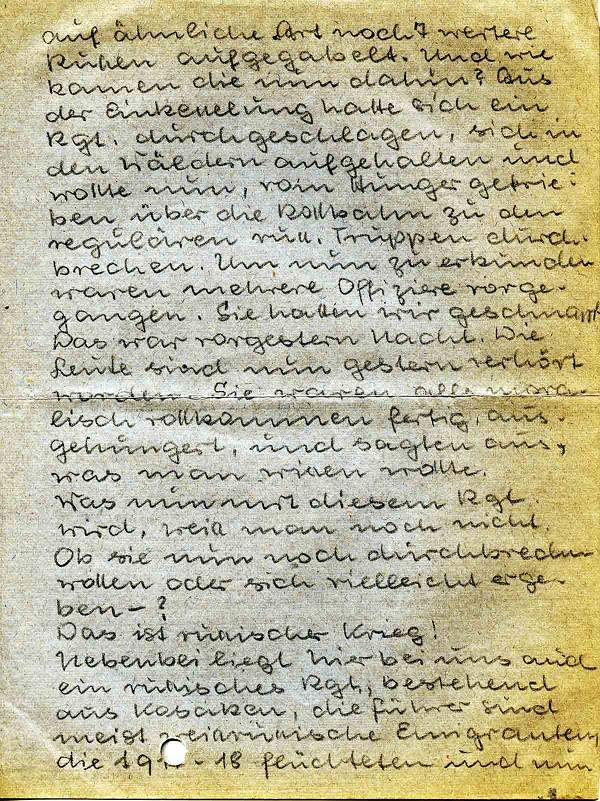 auf ähnliche Art noch 7 weitere
Russen aufgegabelt. Und wie
kamen die nun dahin? Aus
der Einkesselung hatte sich ein
Rgt. durchgeschlagen, sich in
den Wäldern aufgehalten und
wollte nun, vom Hunger getrie-
ben über die Rollbahn zu den
regulären russ. Truppen durch-
brechen. Um nun zu erkunden
waren mehrere Offiziere vorge-
gangen. Sie hatten wir geschnappt
Das war vorgestern Nacht. Die
Leute sind nun gestern verhört
worden. Sie waren alle mora-
lisch vollkommen fertig, aus-
gehungert, und sagten aus,
was man wissen wollte.
Was nun mit diesem Rgt.
wird, weiß man noch nicht.
Ob sie nun noch durchbrechen
wollen oder sich vielleicht erge-
ben - ?
Das ist russischer Krieg!
Nebenbei liegt hier bei uns auch
ein russisches Rgt., bestehend
aus Kosaken, die Führer sind
meist weissrussische Emigranten,
die - 18 flüchteten und nun